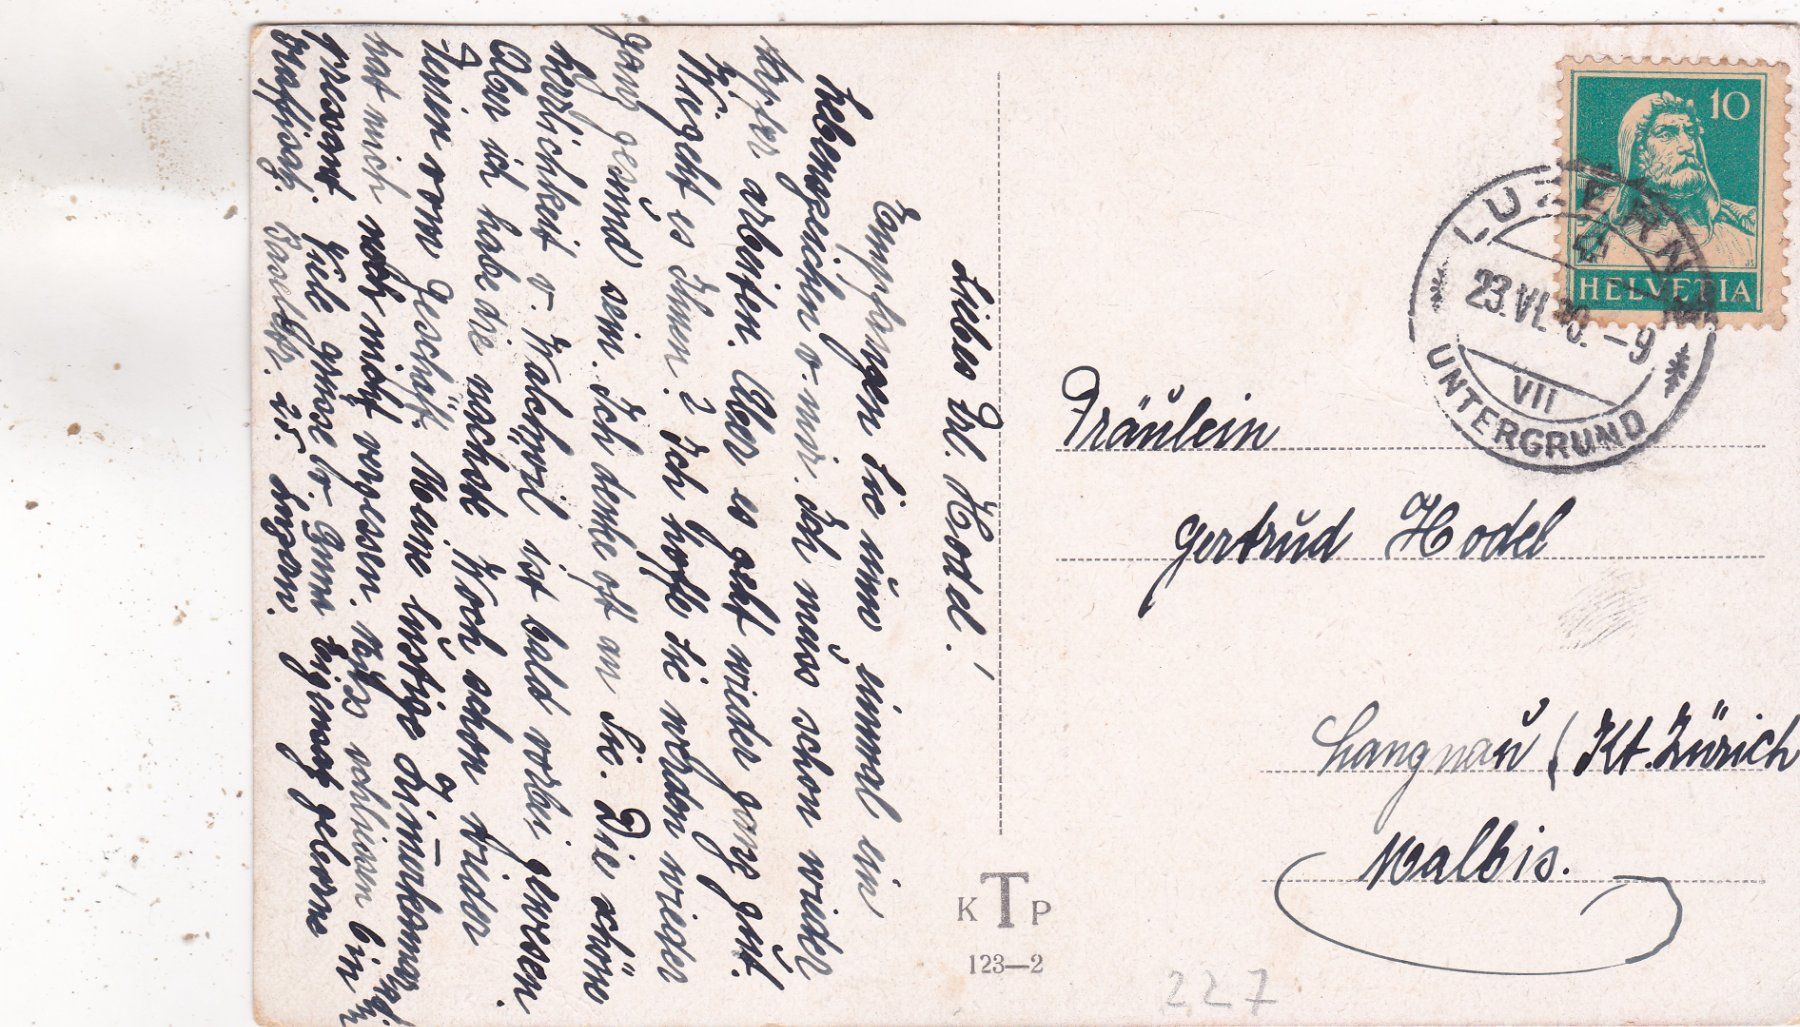 Liebes Frl. Hodel!
Empfangen Sie nun einmal ein
Lebenszeichen v. mir. Ich muss schon wieder
tapfer arbeiten. Aber es geht wieder ganz gut.
Wie geht es Ihnen? Ich hoffe Sie werden wieder
ganz gesund sein. Ich denke oft an Sie. Die schöne
Herrlichkeit v. ist bald vorbei gewesen.
Aber ich habe die nächste Woch schon wieder
Ferien vom Geschäft. Meine lustige
hat mich noch nicht vergessen. Muss schliessen bin
pressant. Viele grüsse v.
Baselstr. 25. Luzern.
Fräulein
Gertrud Hodel
Langnau (Kt. Zürich
Walbis.
10
HELVETIA
LUZERN
23.VI. -9
VII
UNTERGRUND
K T P
123—2
227